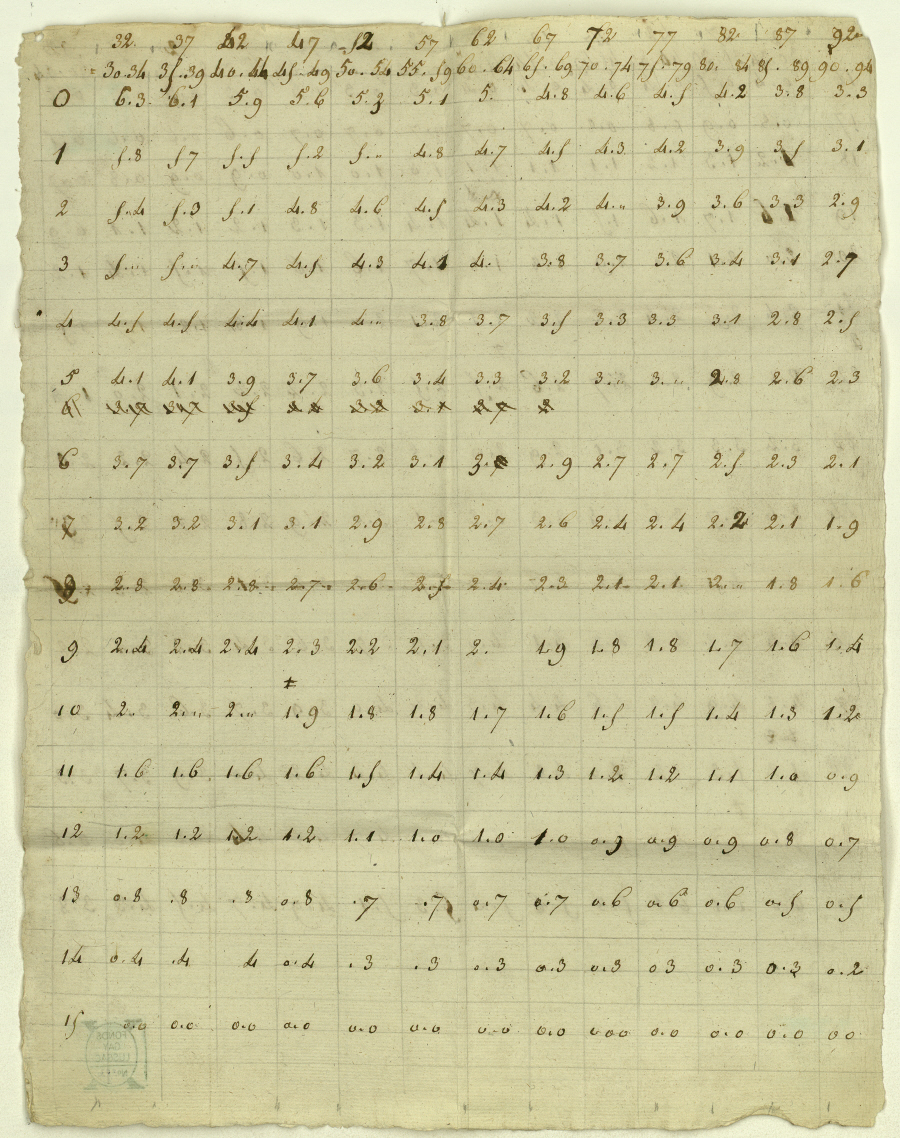 32. 37 42 47 52 57 62 67 72 77 82 87 92
30.34 35.39 40.44 45.49 50.54 55.59 60.64 65.69 70.74 75.79 80.84 85.89 90.94
0 6.3 6.1 5.9 5.6 5.3 5.1 5. 4.8 4.6 4.5 4.2 3.8 3.3
1 5.8 5.7 5.5 5.2 5.. 4.8 4.7 4.5 4.3 4.2 3.9 3.5 3.1
2 5.4 5.3 5.1 4.8 4.6 4.5 4.3 4.2 4.. 3.9 3.6 3.3 2.9
3 5.. 5.. 4.7 4.5 4.3 4.1 4. 3.8 3.7 3.6 3.4 3.1 2.7
4 4.5 4.5 4.4 4.1 4.. 3.8 3.7 3.5 3.3 3.3 3.1 2.8 2.5
5 4.1 4.1 3.9 3.7 3.6 3.4 3.3 3.2 3.. 3.. 2.8 2.6 2.3
6 3.7 3.7 3.5 3.4 3.2 3.1 3. 2.9 2.7 2.7 2.5 2.3 2.1
7 3.2 3.2 3.1 3.1 2.9 2.8 2.7 2.6 2.4 2.4 2.2 2.1 1.9
8 2.8 2.8 2.8 2.7 2.6 2.5 2.4 2.3 2.1 2.1 2.. 1.8 1.6
9 2.4 2.4 2.4 2.3 2.2 2.1 2. 1.9 1.8 1.8 1.7 1.6 1.4
10 2.. 2.. 2.. 1.9 1.8 1.8 1.7 1.6 1.5 1.5 1.4 1.3 1.2
11 1.6 1.6 1.6 1.6 1.5 1.4 1.4 1.3 1.2 1.2 1.1 1.0 0.9
12 1.2 1.2 1.2 1.2 1.1 1.0 1.0 1.0 0.9 0.9 0.9 0.8 0.7
13 0.8 .8 .8 0.8 .7 .7 0.7 0.7 0.6 0.6 0.6 0.5 0.5
14 0.4 .4 4 0.4 .3 .3 0.3 0.3 0.3 03 0.3 0.3 0.2
15 0.0 0.0 0.0 0.0 0.0 0.0 0.0 0.0 0.00 0.0 0.0 0.0 00